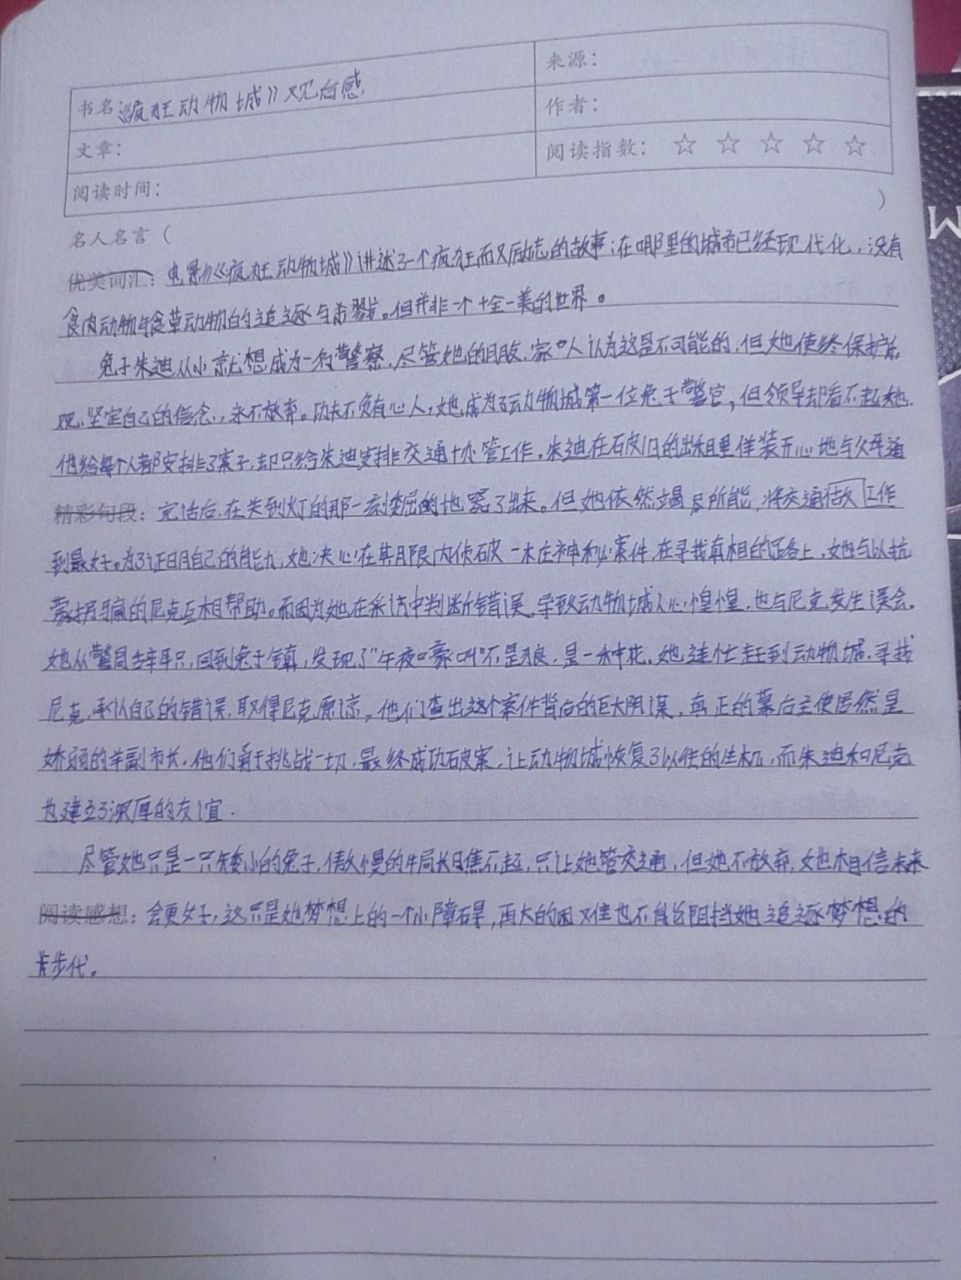 书名:《疯狂动物城》观后感
来源:
文章:
作者:
阅读时间:
阅读指数: ☆ ☆ ☆ ☆ ☆
名人名言( )
优美词汇: 电影《疯狂动物城》讲述了一个疯狂而又励志的故事:在哪里的城市已经现代化,没有
食肉动物与食草动物的追逐与杀戮。但并非一个十全十美的世界。
兔子朱迪从小就想成为一名警察,尽管她的朋友,家人认为这是不可能的,但她使终保护
观,坚定自己的信念,永不放弃。功夫不负有心人,她成为了动物城第一位兔子警官,但领导却看不起她,
他给每个人都安排了案子,却只给朱迪安排交通协管工作。朱迪在破旧的出租里佯装开心地与父母通
精彩句段: 完话后,在关到灯的那一刻委屈的地哭了出来。但她依然竭尽所能,将交通工作做
到最好。为了证明自己的能力,她决心在期限内侦破一桩神秘案件,在寻找真相的路上,她与以
拐骗的尼克互相帮助。而因为她在采访中判断错误,导致动物城人心惶惶,也与尼克发生误会。
她从警局辞职,回到兔子镇,发现了"午夜嚎叫"不是狼,是一种花。她连忙赶到动物城,寻找
尼克,承认自己的错误,取得尼克原谅。他们查出这个案件背后的巨大阴谋,真正的幕后主使居然是
娇弱的羊副市长,他们勇于挑战一切,最终成功破案,让动物城恢复了以往的生机,而朱迪和尼克
为建立了深厚的友谊.
尽管她只是一只矮小的兔子,傲慢的牛局长瞧不起,只让她管交通,但她不放弃,她相信未来
阅读感想: 会更好,这只是她梦想上的一个小障碍,再大的困难也不能阻挡她追逐梦想的
步伐。